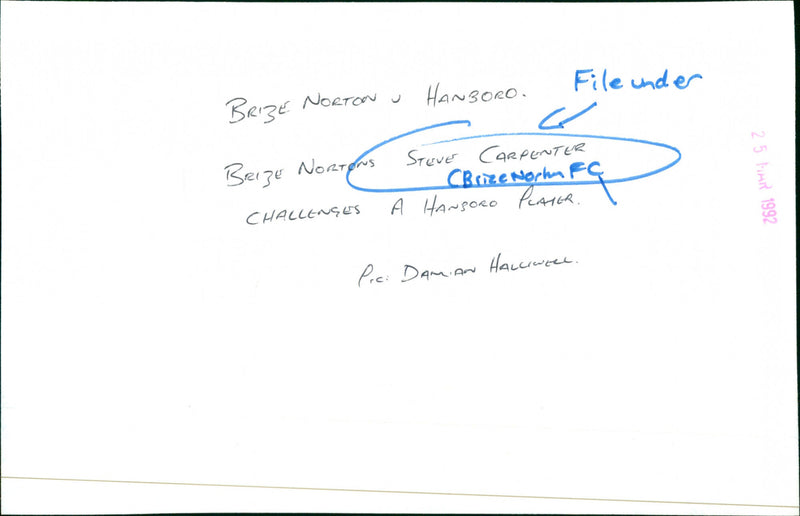 File under
BRIZE NORTON V HANBORO.
BRIZE NORTONS STEVE CARPENTER
(Brize Norton FC)
CHALLENGES A HANBORO PLAYER.
PIC: DAMIAN HALLIWELL.
25 MAR 1992